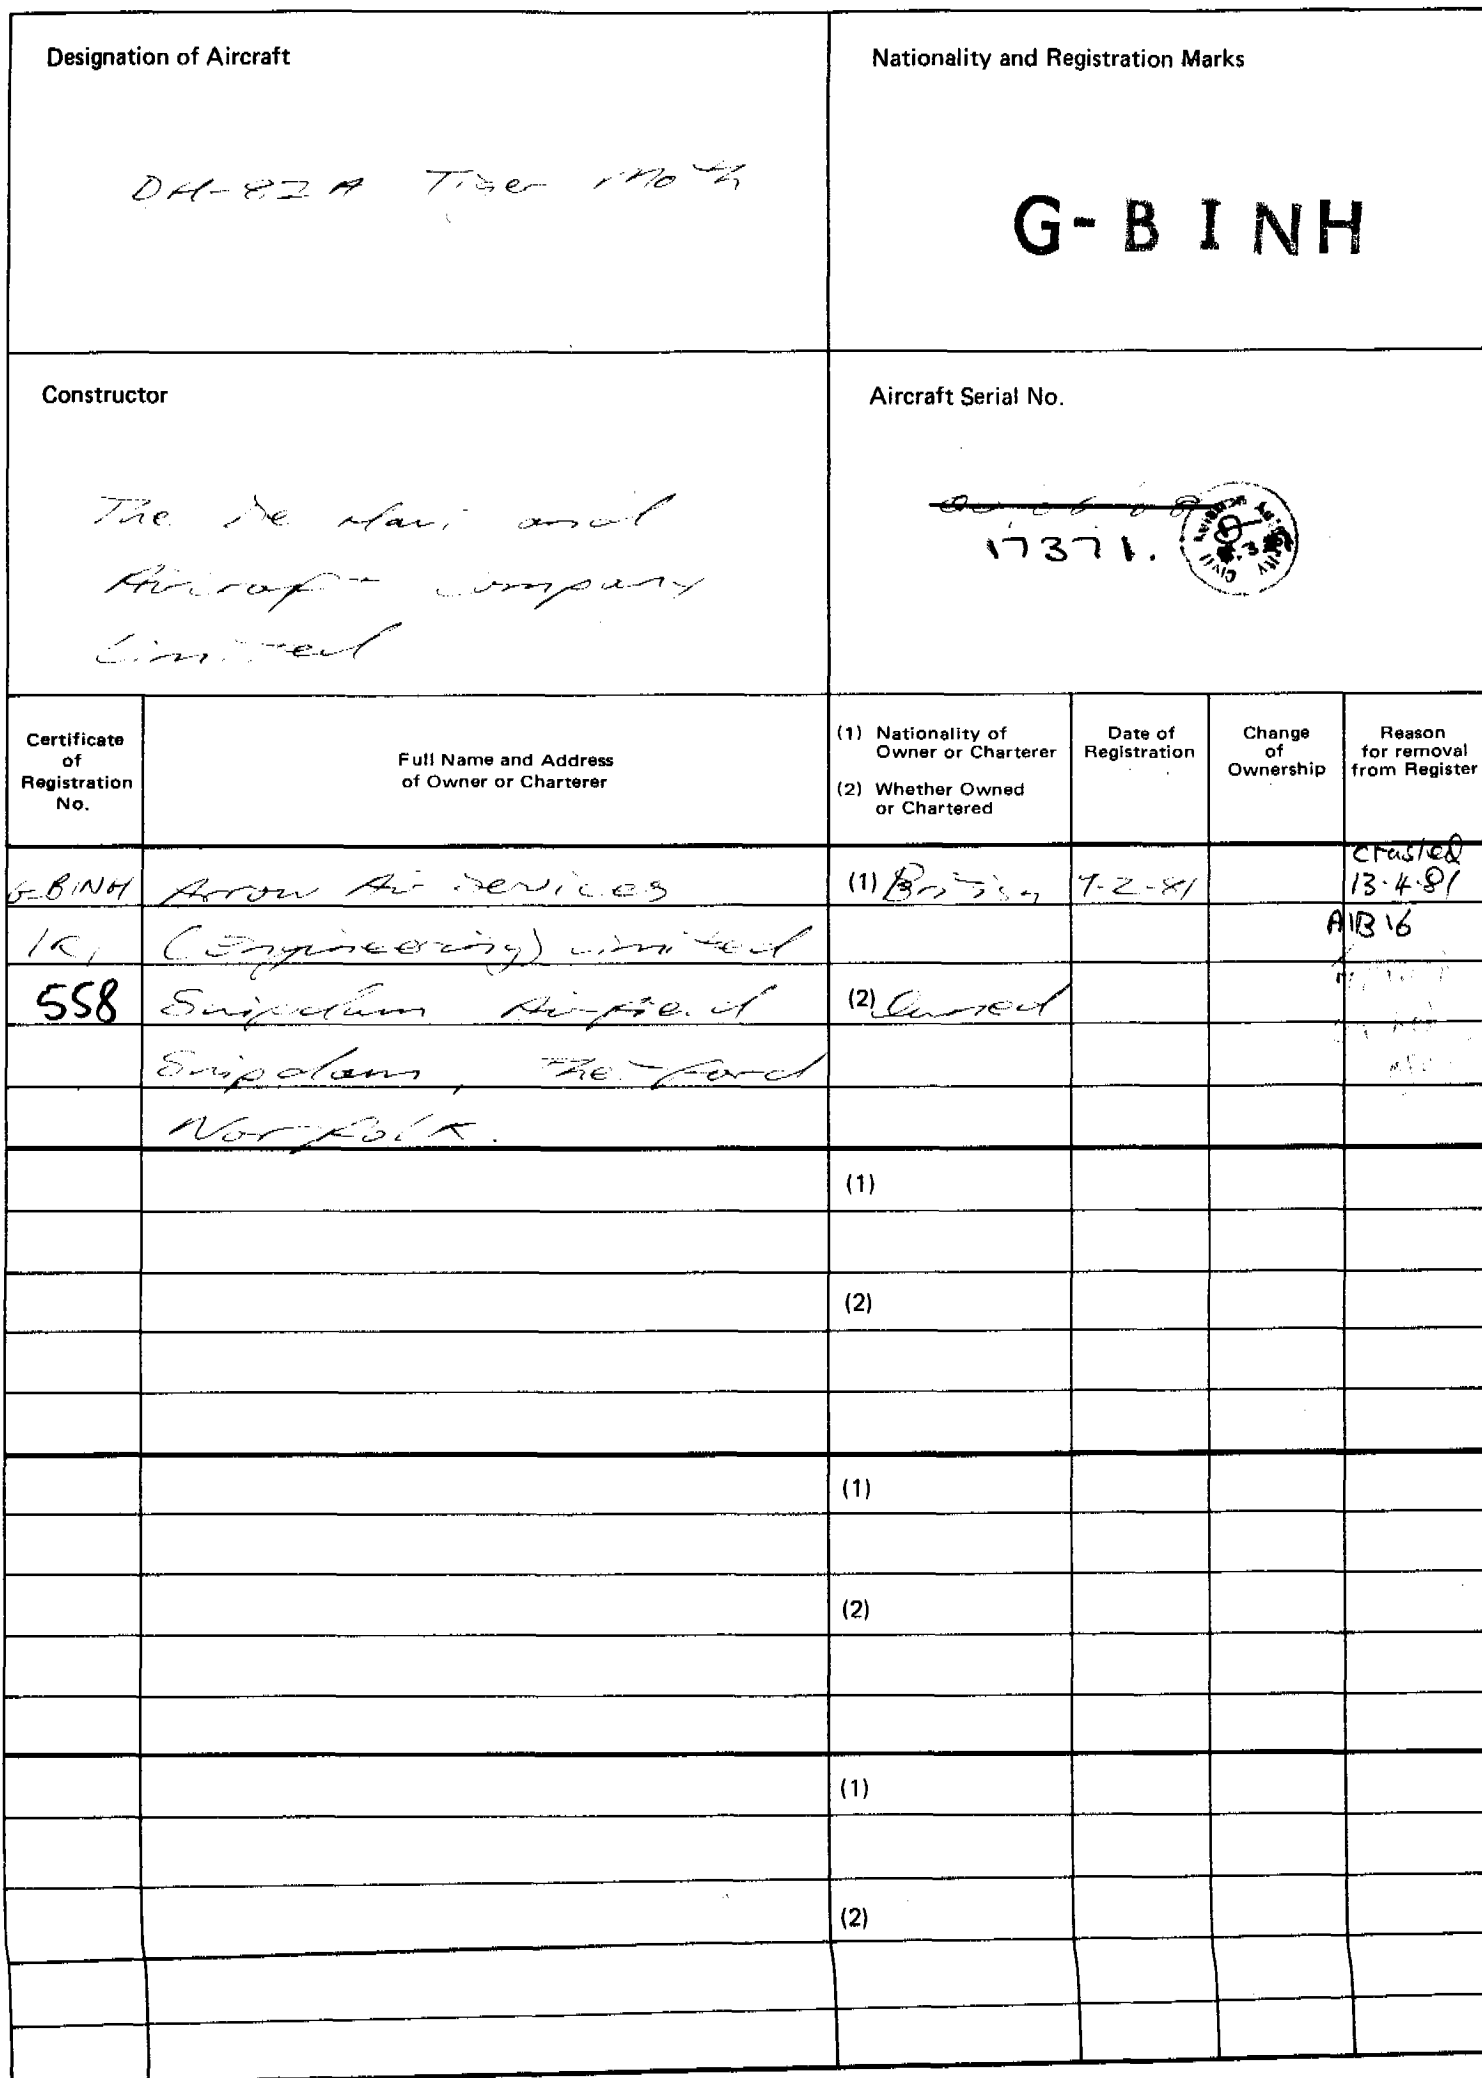 Designation of Aircraft
DH-82A Tiger Moth
Nationality and Registration Marks
G-BINH
Constructor
The De Havi and
Aircraft company
Limited
Aircraft Serial No.
17371.
Certificate
of
Registration
No.
Full Name and Address
of Owner or Charterer
(1) Nationality of
Owner or Charterer
(2) Whether Owned
or Chartered
Date of
Registration
Change
of
Ownership
Reason
for removal
from Register
G-BINH Arrow Air Services (1) British 9-2-81 crashed 13.4.81
(Engineering) Limited AIB 16
558 Shipdham Airfield (2) Owned
Shipdham, Thetford
Norfolk.
(1)
(2)
(1)
(2)
(1)
(2)